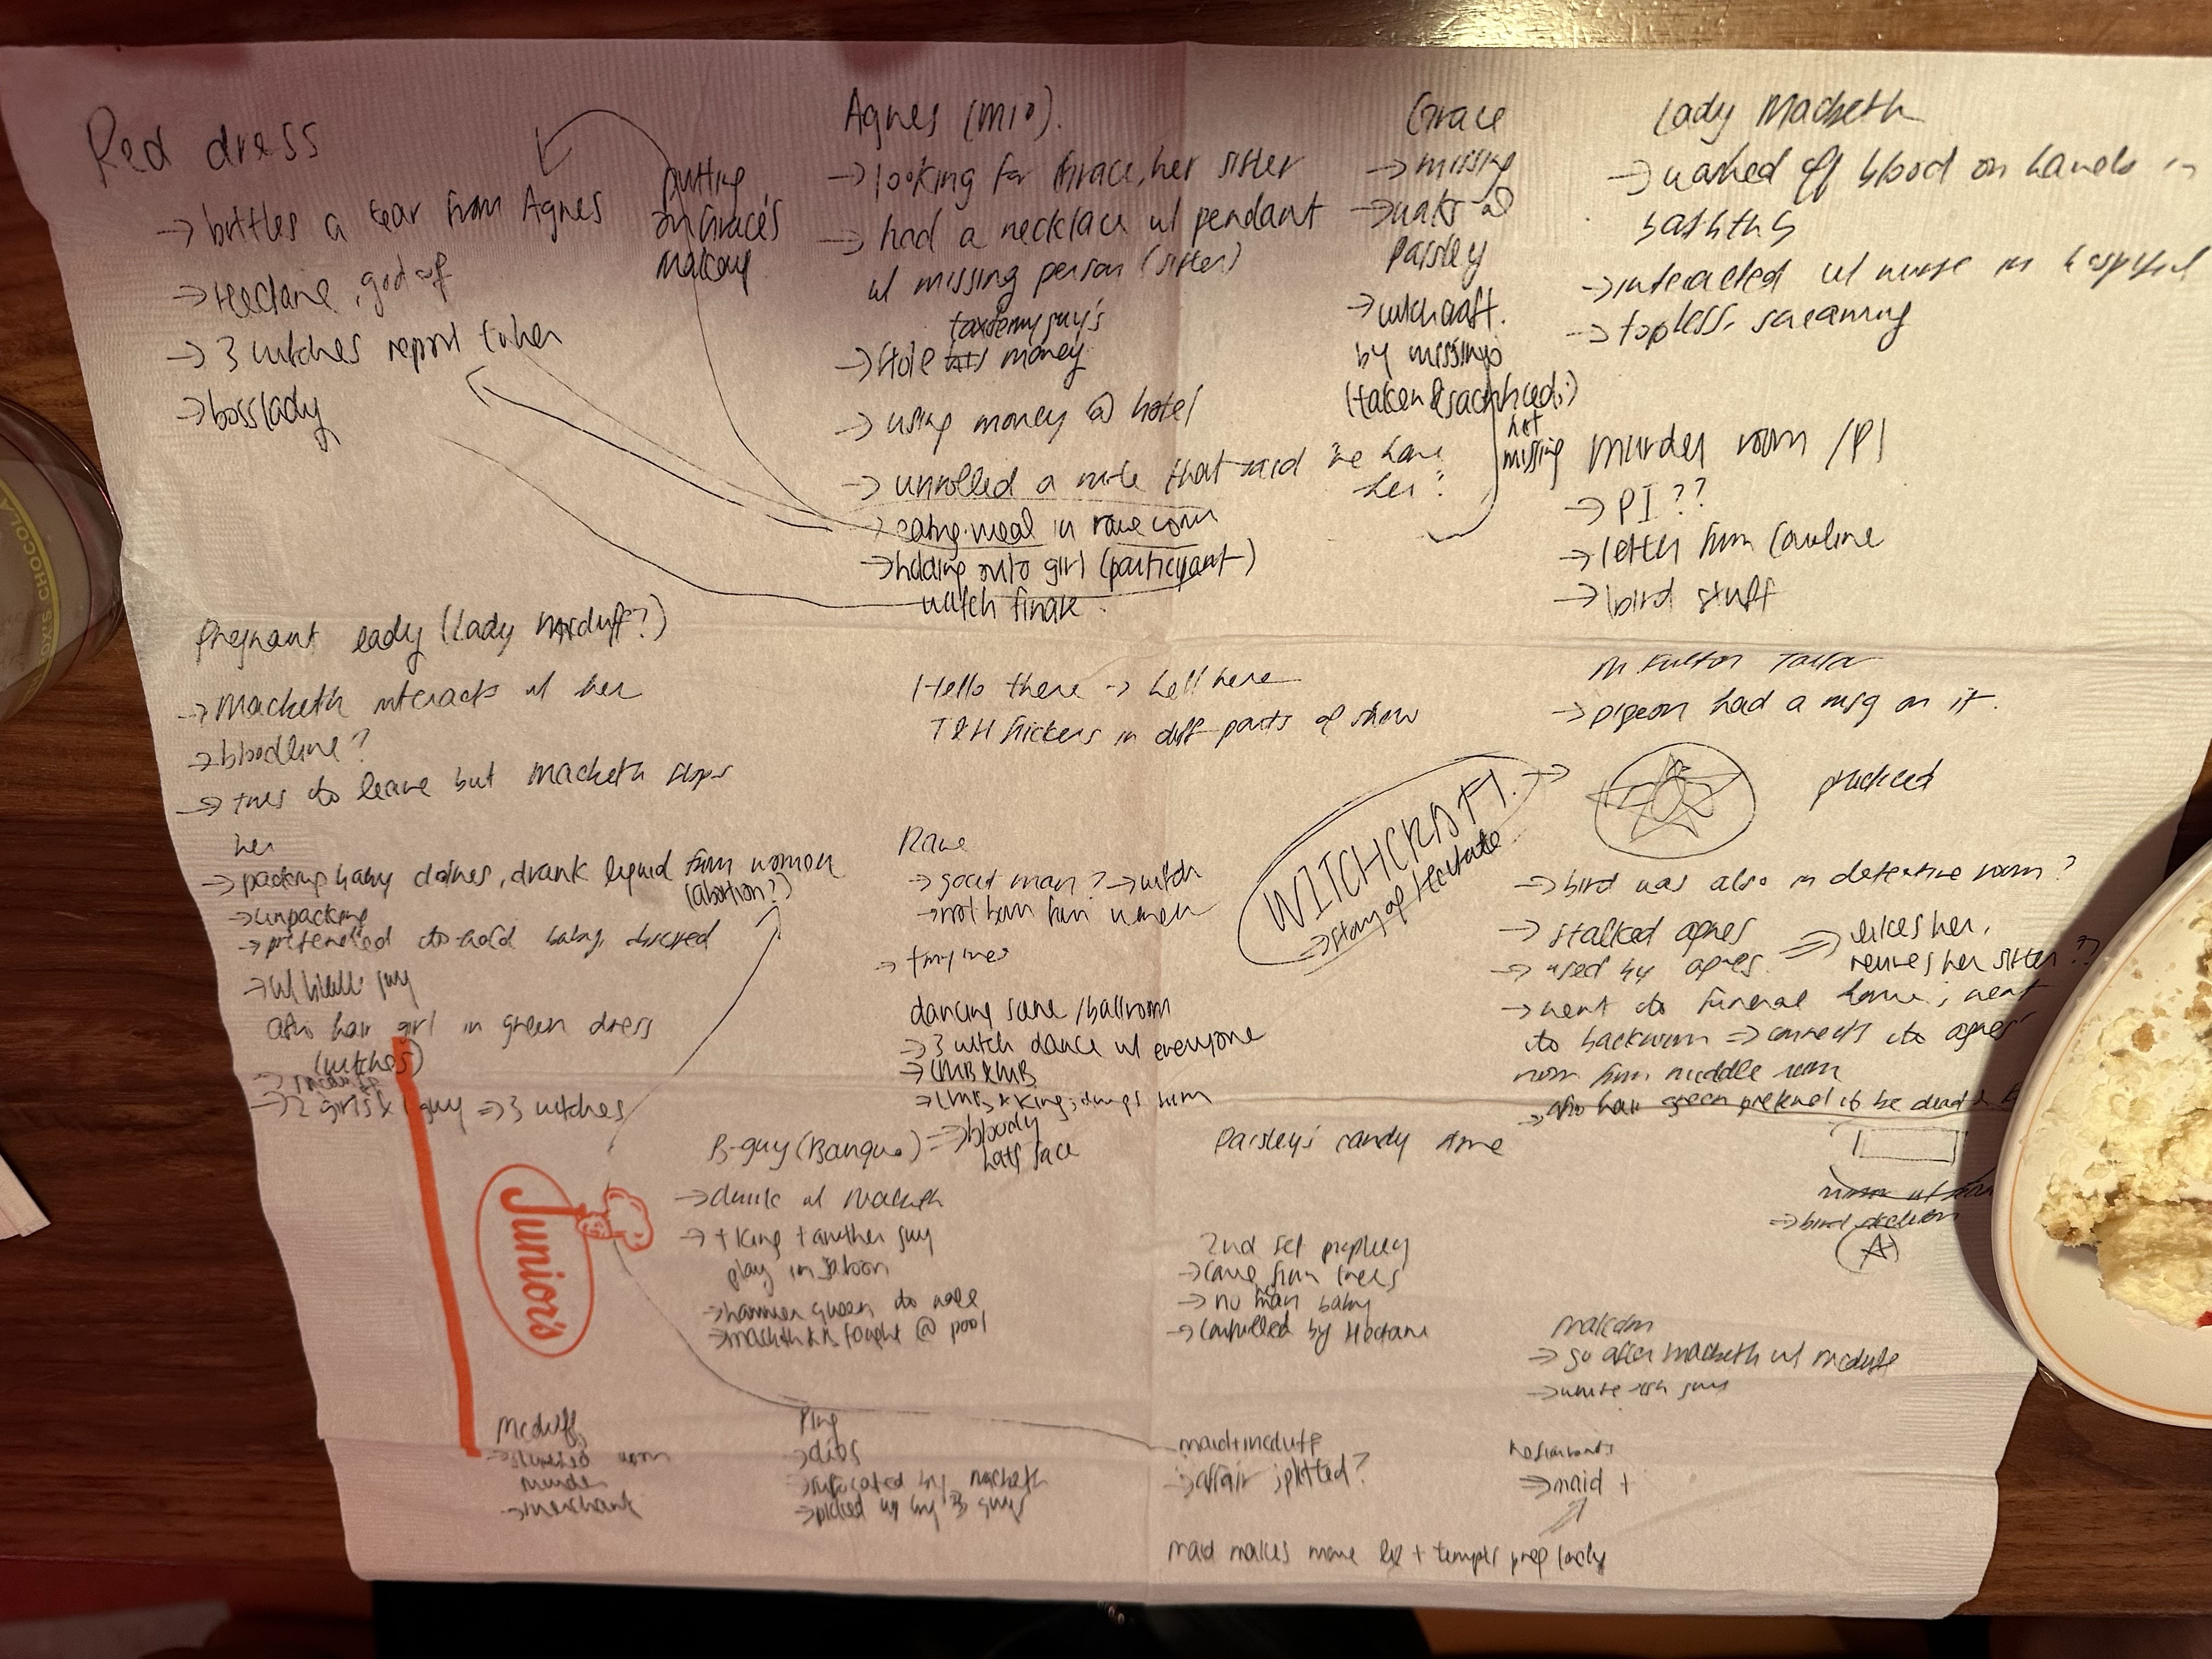 Red dress
→ bottles a tear from Agnes
→ Hectane, god of
→ 3 witches report to her
→ boss lady
putting
on Grace's
makeup
Agnes (m10).
→ looking for Grace, her sister
→ had a necklace w/ pendant
w/ missing person (sister)
taxidermy guy's
→ stole his money
→ using money @ hotel
→ unrolled a note that said "we have
her"
→ eating meal in rave room
→ holding onto girl (participant)
watch finale.
Grace
→ missing
@
Paisley
→ witchcraft.
by missing
(taken & sacrificed?)
not
missing
Lady Macbeth
→ washed off blood on hands in
bathtub
→ interacted w/ nurse in hospital
→ topless, screaming
Murder room / PI
→ PI ??
→ letter from Caroline
→ bird stuff
Pregnant lady (Lady Mcduff?)
→ Macbeth interacts w/ her
→ bloodline?
→ tries to leave but Macbeth stops
her
→ packing baby clothes, drank liquid from woman
(abortion?)
→ unpacking
→ pretended to hold baby,
→ w/ guy
afro hair girl in green dress
(witches)
→ 2 girls & 1 guy ⇒ 3 witches
Hello there → hell here
T&H stickers in diff parts of show
Mr Fulton Tailor
→ pigeon had a msg on it.
WITCHCRAFT!
→ story of Hectate
→ bird was also in detective room?
→ stalked agnes
→ used by agnes.
⇒ likes her,
her sister??
→ went to funeral home; went
to backroom ⇒ connects to agnes'
room from middle room
→ afro hair green pretend to be dead
→ bird
Rave
→ goat man? → witch
→ not born from woman
dancing scene / ballroom
→ 3 witch dance w/ everyone
→ LMB & MB
→ LMB & King;
B-guy (Banquo) ⇒ bloody
half face
→ drunk w/ Macbeth
→ + King + another guy
play in saloon
→ hammer queen to
→ Macbeth & B fought @ pool
Paisley's candy store
2nd set prophecy
→ came from trees
→ no man baby
→ controlled by Hectane
Malcolm
→ go after Macbeth w/ mcduff
→ guy
Junior's
Mcduff
murder
→ merchant
King
→ dies
→ suffocated by Macbeth
→ picked up by 3 guys
maid + mcduff
→ affair; plotted?
→ maid +
maid makes move + tempts preg lady
CHOCOLA